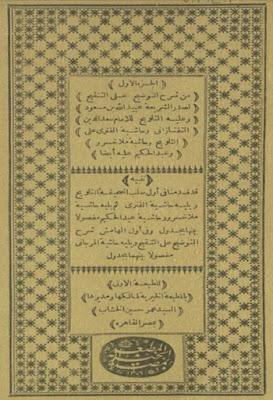 ﴿ الجزء الاول ﴾
﴿ من شرح التوضيح على التنقيح ﴾
﴿ لصدر الشريعة عبيد الله بن مسعود ﴾
﴿ وعليه التلويح للامام سعد الدين ﴾
﴿ التفتازانى وحاشية الفنرى على ﴾
﴿ التلويح وحاشية ملا خسرو ﴾
﴿ وعبد الحكيم عليه أيضا ﴾
﴿ تنبيه ﴾
قد قدمنا فى أول صلب الصحيفة التلويح
ويليه حاشية الفنرى ثم يليه حاشية
ملا خسرو وحاشية عبد الحكيم مفصولا
بينها بجدول وفى أول الهامش شرح
التوضيح على التنقيح ويليه حاشية المرجانى
مفصولا بينهما بجدول
﴿ الطبعة الاولى ﴾
بالمطبعة الخيرية لمالكها ومديرها
السيد عمر حسين الخشاب
بمصر القاهرة